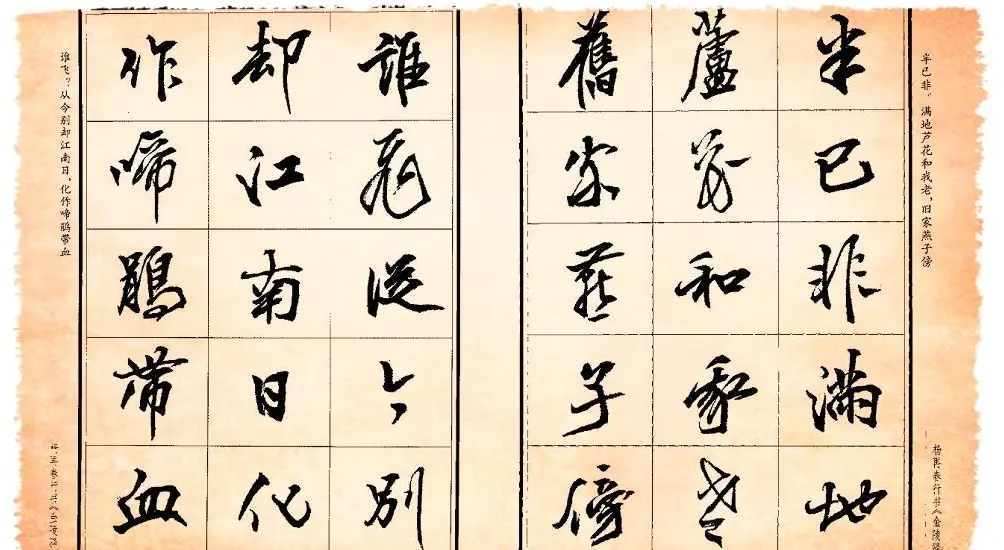 半已非。满地芦花和我老,旧家燕子傍
杨再春行书《金陵驿
半已非滿地
蘆花和我老
舊家燕子傍
誰飛從今別
却江南日化
作啼鵑帶血
谁飞?从今别却江南日,化作啼鹃带血